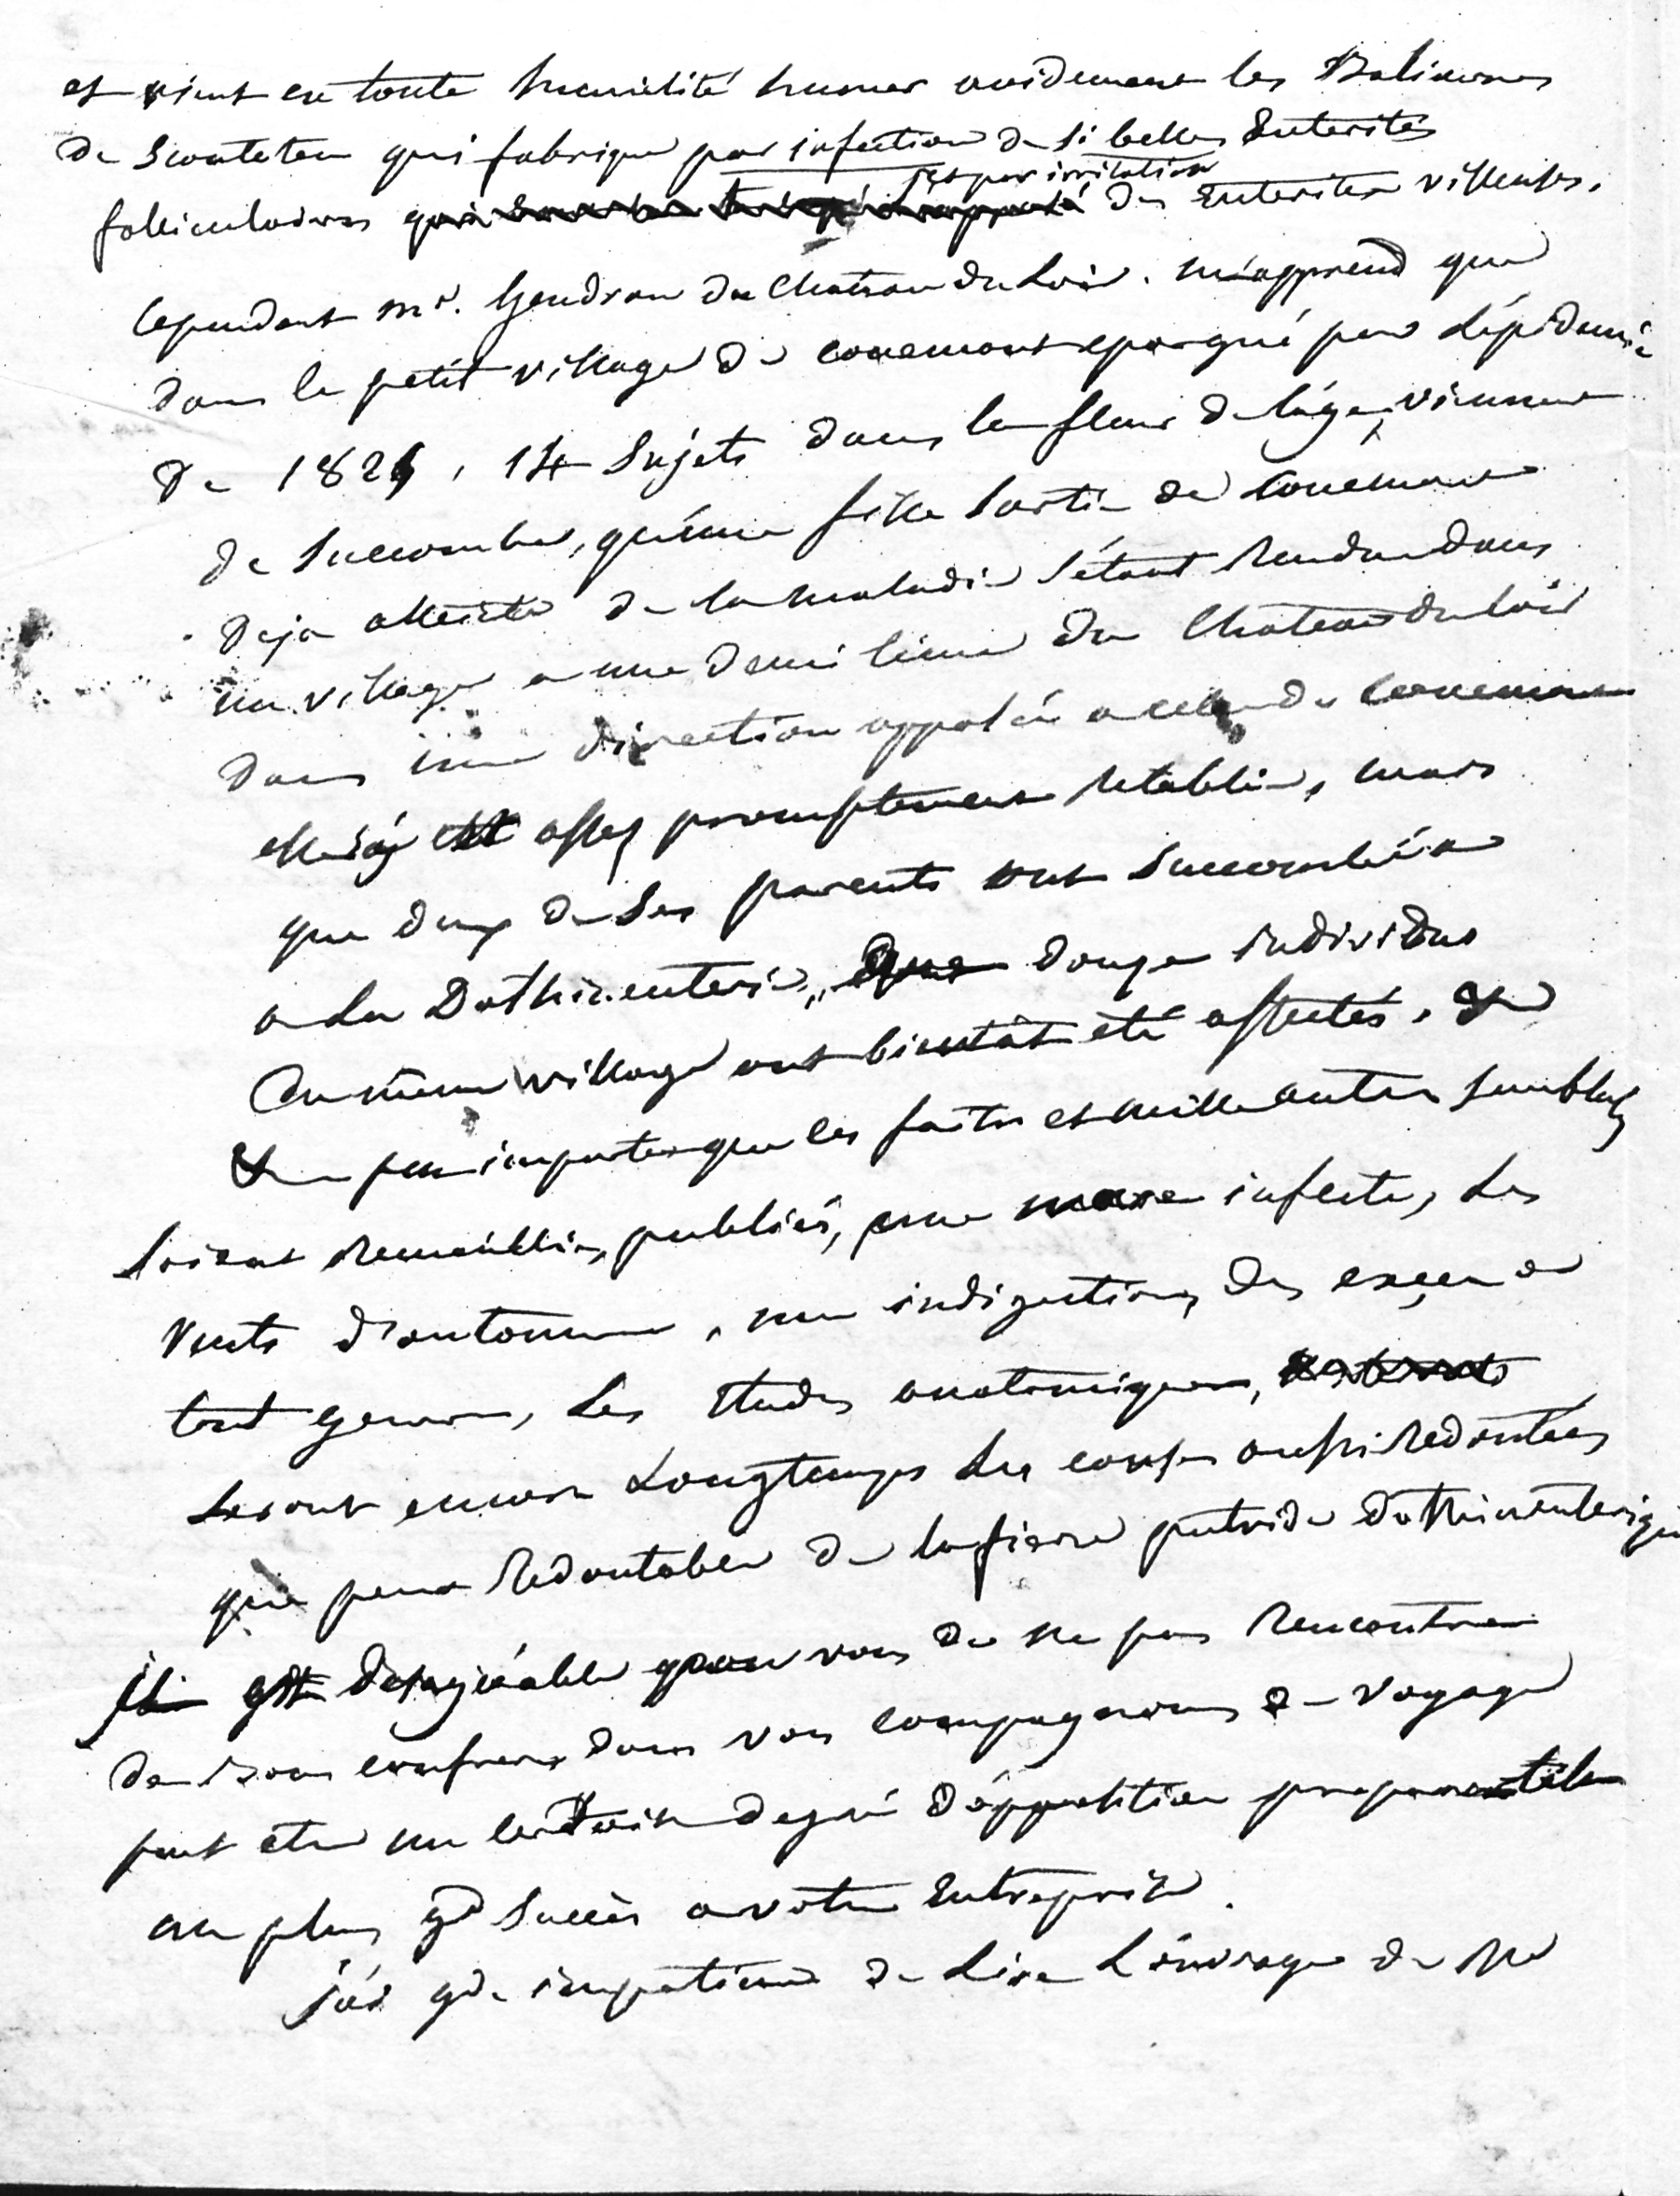 et vient en toute humilité humer avidement les Balivernes
de Scouteten qui fabrique par infection de si belles Enterites
et par irritation
folliculaires des Enterites villeuses.
Cependant mr. Gendron du Chateau du Loir. m'apprend que
dans le petit village de couemont epargné par l'épidemie
de 1826, 14 Sujets dans la fleur de l'age, viennent
de Succomber, qu'une fille Sortie de Couemont
deja atteinte de la maladie s'étant Rendue dans
un village a une demi lieue du Chateau du loir
dans une direction opposée a celle de Couemont
elle s'y est assez promptement Retablie, mais
que deux de Ses parents ont Succombé a
a la Dothinenterie, que douze individus
du même village ont bientôt été affectés. &
& peu importe que ces faits et mille autres semblables
Soient Recueillis, publiés, une mare infecte, Les
Vents d'automne, une indigestion, des exces de
tout genre, Les Etudes anatomiques,
Seront encore Longtemps Les causes aussi Redoutées
que peu Redoutables de la fievre putride dothinenterique
Il est desagréable pour vous de ne pas Rencontrer
de bons confreres dans vos compagnons de Voyage
peut etre un certain degré d'opposition
au plus gd Succès a votre Entreprise.
j'ai gde impatience de Lire L'ouvrage de Mr